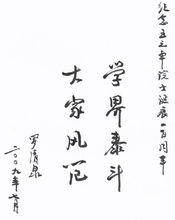 纪念王之卓院士诞辰一百周年
学界泰斗
大家风范
罗清泉
二〇〇九年七月